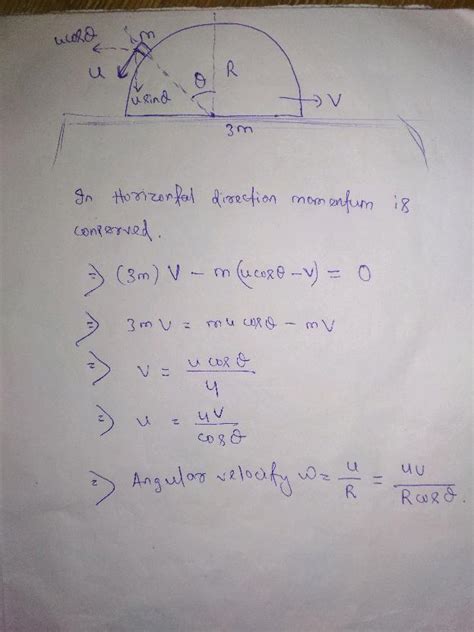 m
ucosθ
u
R
θ
usinθ
V
3m
In Horizontal direction momentum is
conserved.
⇒ (3m) V - m(ucosθ - v) = 0
⇒ 3mV = mu cosθ - mV
⇒ V = u cosθ / 4
⇒ u = 4V / cosθ
⇒ Angular velocity ω = u/R = 4V / R cosθ.